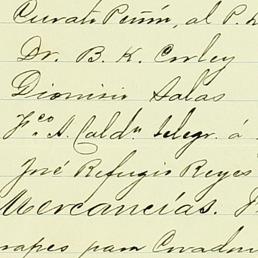 Curato Peñón, al P.
Dr. B. K. Corley
Dionisio Salas
Fco. A. Caldn telegr. á
José Refugio Reyes
Mercancías.
para